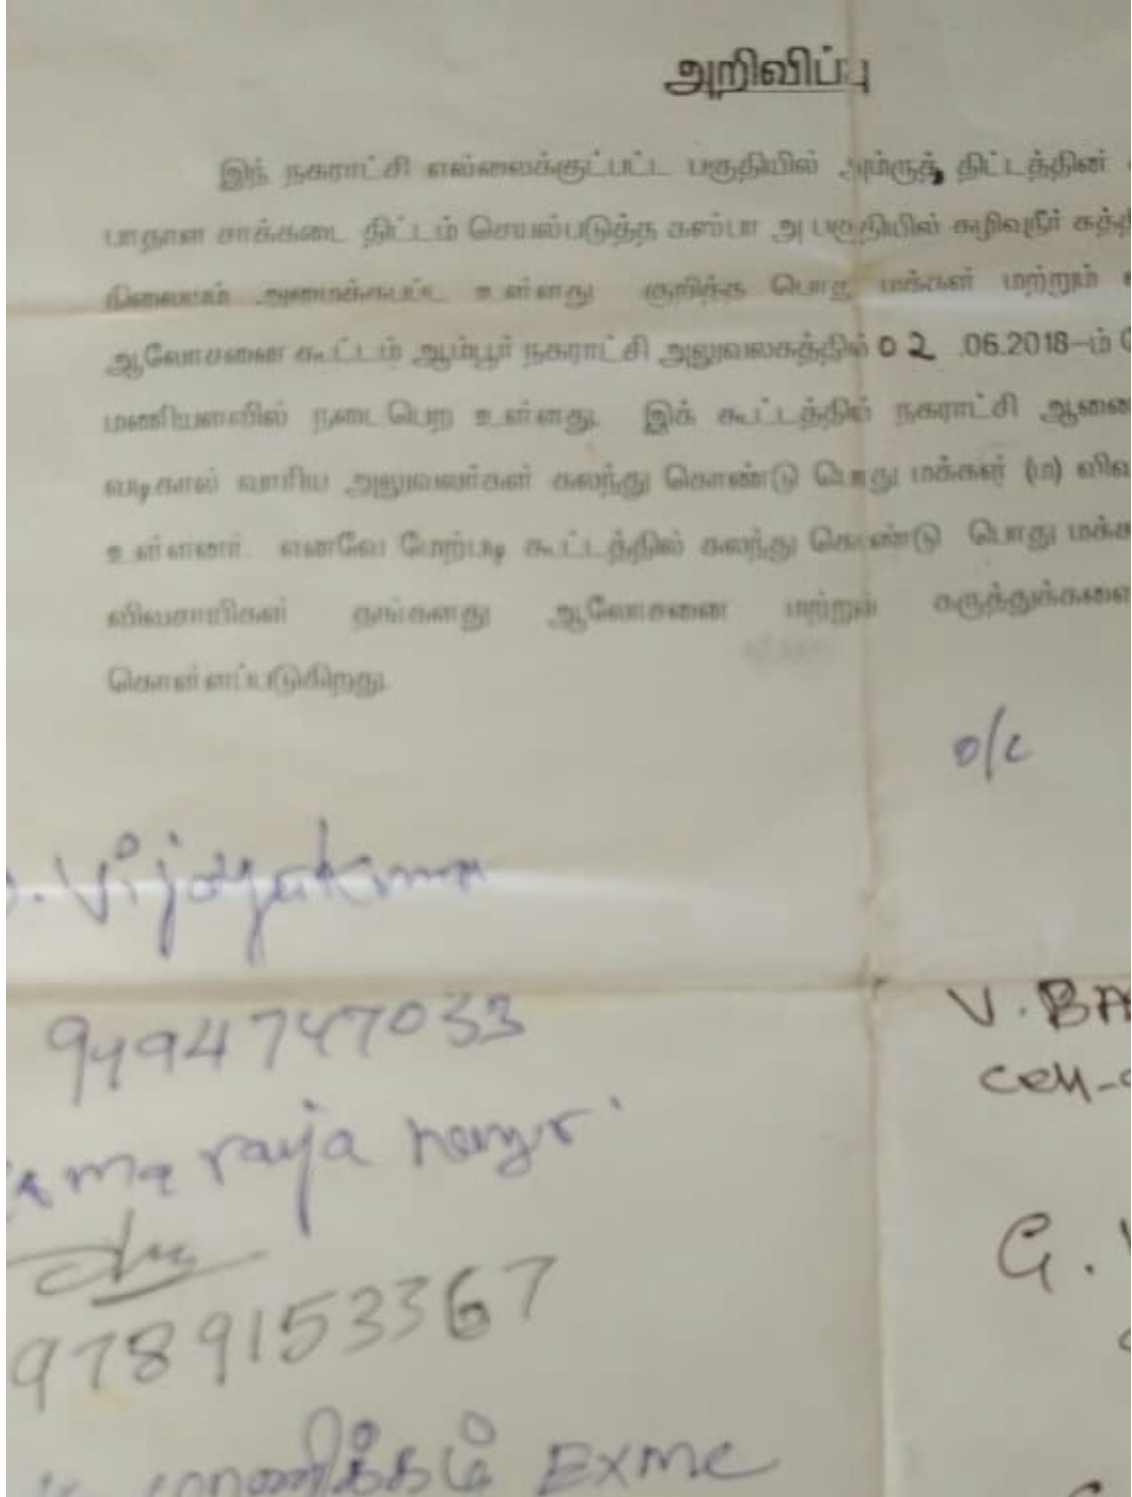 அறிவிப்பு
இந் நகராட்சி எல்லைக்குட்பட்ட பகுதியில் அம்ருத் திட்டத்தின்
பாதாள சாக்கடை திட்டம் செயல்படுத்த கஸ்பா அ பகுதியில் கழிவுநீர் சுத்தி
நிலையம் அமைக்கபட்ட உள்ளது குறித்த பொது மக்கள் மற்றும்
ஆலோசனை கூட்டம் ஆம்பூர் நகராட்சி அலுவலகத்தில் 02 .06.2018-ம்
மணியளவில் நடைபெற உள்ளது. இக் கூட்டத்தில் நகராட்சி ஆணை
வடிகால் வாரிய அலுவலர்கள் கலந்து கொண்டு பொது மக்கள் (ம) விவ
உள்ளனர். எனவே மேற்படி கூட்டத்தில் கலந்து கொண்டு பொது மக்க
விவசாயிகள் தங்களது ஆலோசனை மற்றும் கருத்துக்களை
கொள்ளப்படுகிறது.
o/c
Vijayakumar
9494747033
V. BA
cell-
raja
9789153367
G.
மாணிக்கம் EXMC